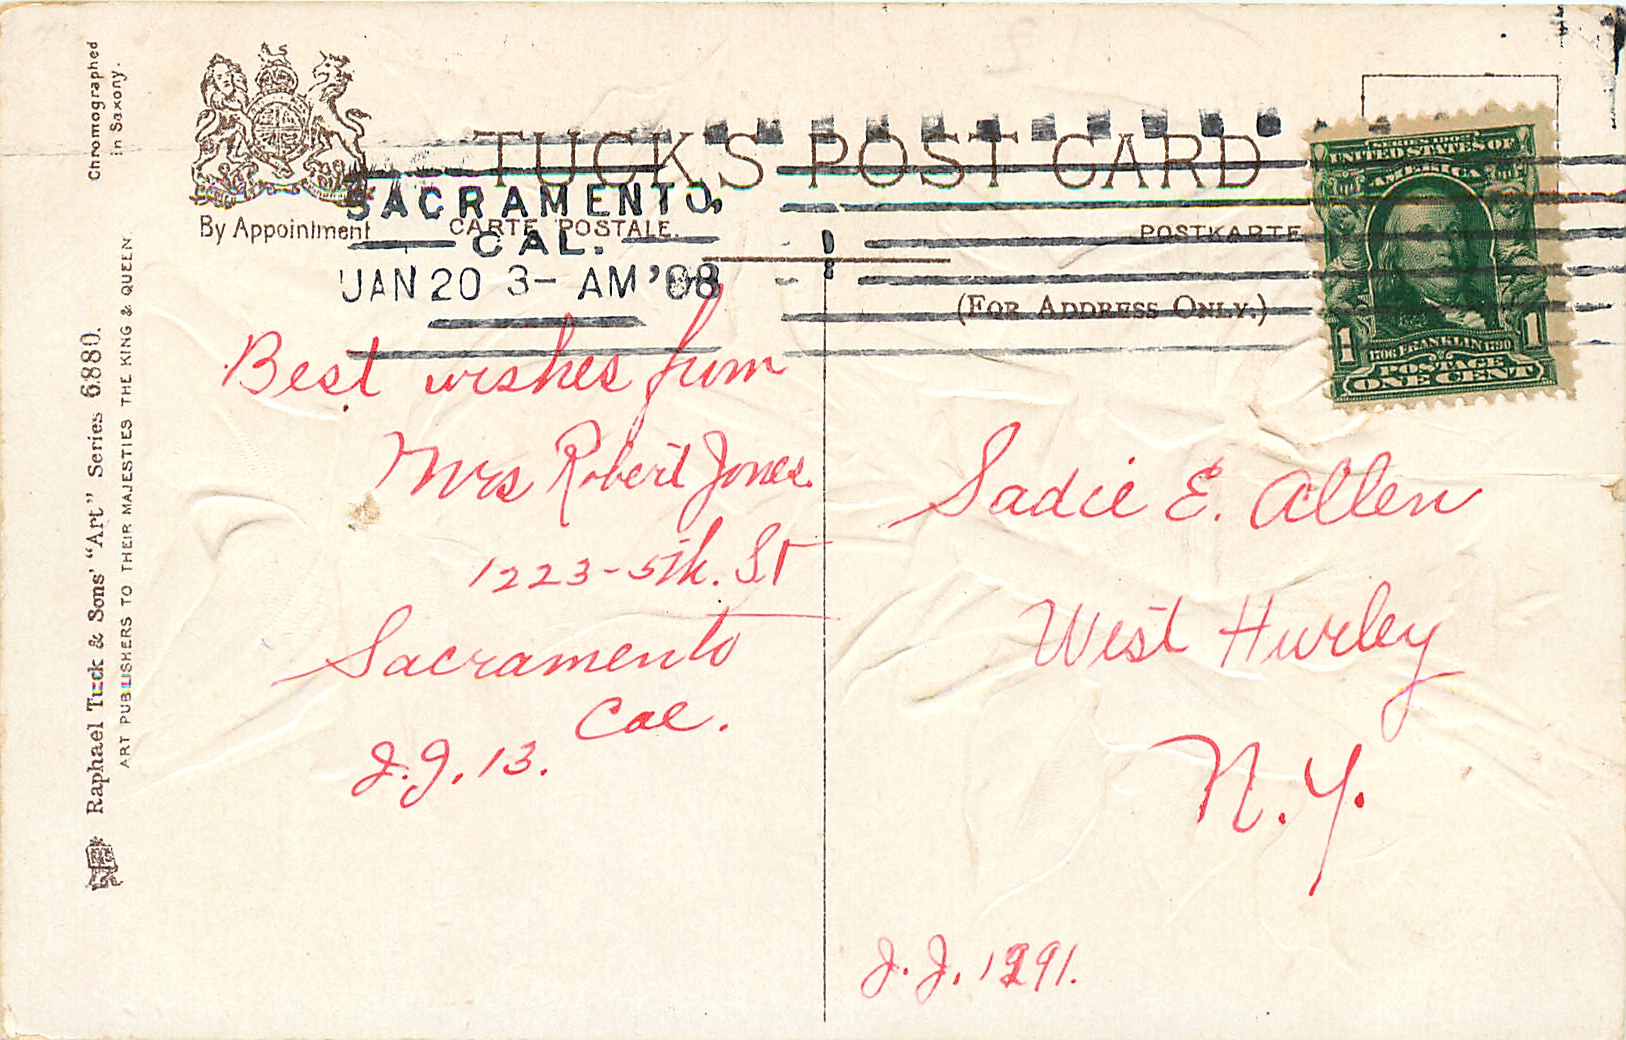 Chromographed
in Saxony.
By Appointment
TUCK'S POST CARD
CARTE POSTALE.
POSTKARTE
(FOR ADDRESS ONLY.)
SACRAMENTO,
CAL.
JAN 20 3- AM '08
SERIES 1902
UNITED STATES OF
AMERICA
1706 FRANKLIN 1790
1 1
POSTAGE
ONE CENT
Raphael Tuck & Sons' "Art" Series 6880.
ART PUBLISHERS TO THEIR MAJESTIES THE KING & QUEEN.
Best wishes from
Mrs Robert Jones.
1223-5th. St
Sacramento
Cal.
J.J. 13.
Sadie E. Allen
West Hurley
N. Y.
J. J. 1291.